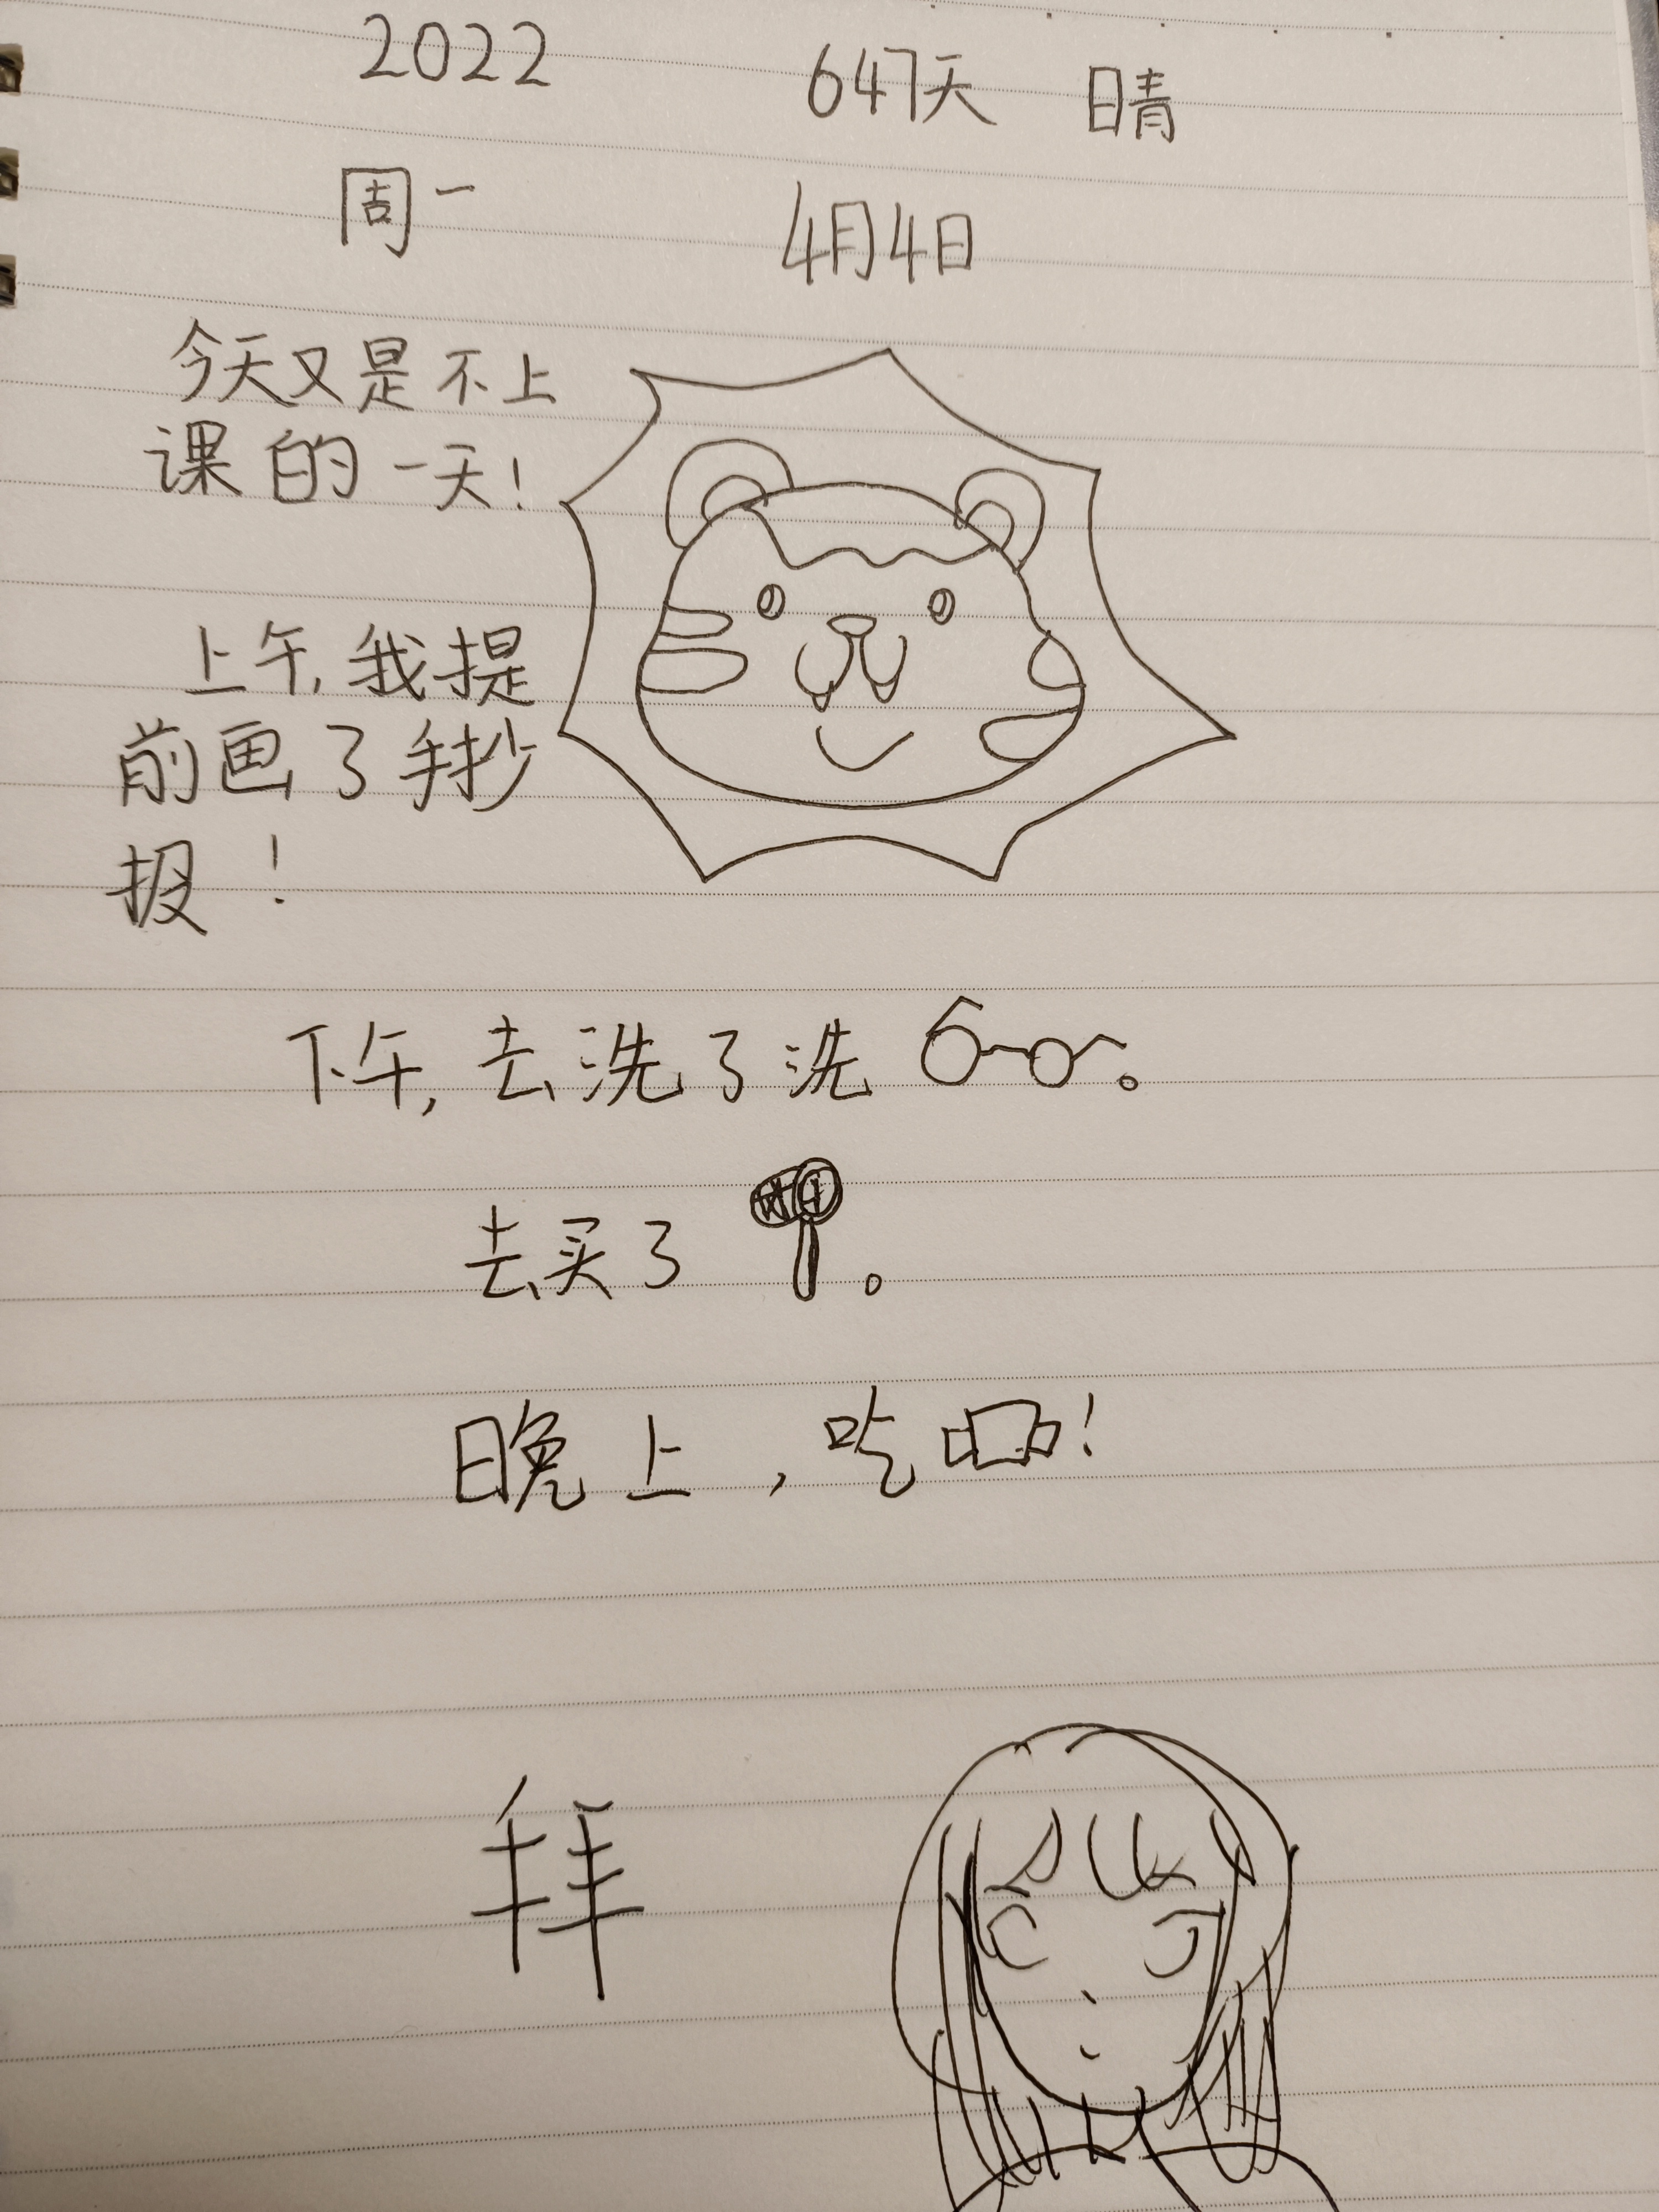 2022 647天 晴
周一 4月4日
今天又是不上
课的一天！
上午，我提
前画了手抄
报！
下午，去洗了洗。
去买了。
晚上，吃！
拜